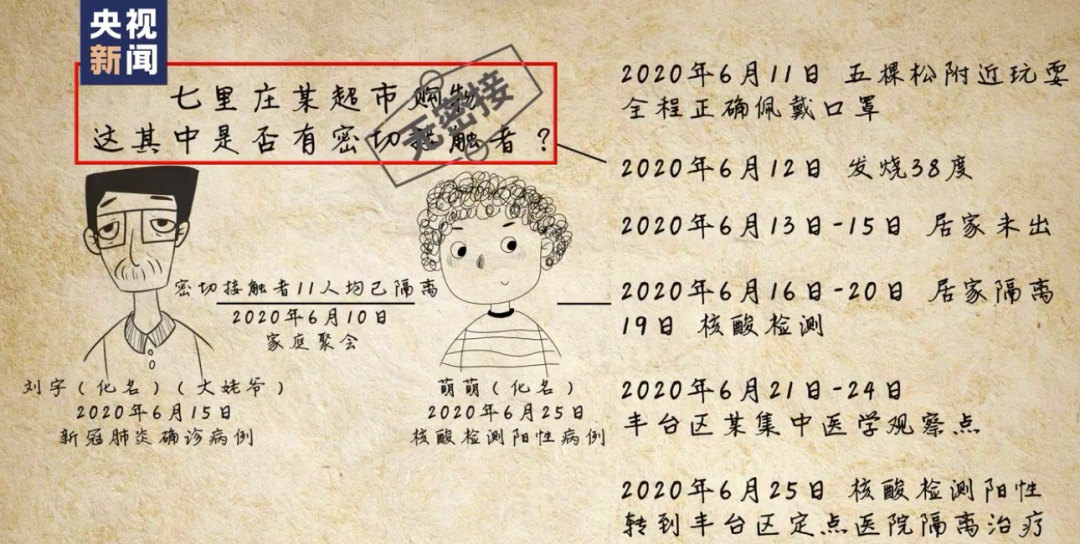 央视
新闻
七里庄某超市购物
这其中是否有密切接触者？
无密接
2020年6月11日 五棵松附近玩耍
全程正确佩戴口罩
2020年6月12日 发烧38度
2020年6月13日-15日 居家未出
2020年6月16日-20日 居家隔离
19日 核酸检测
2020年6月21日-24日
丰台区某集中医学观察点
2020年6月25日 核酸检测阳性
转到丰台区定点医院隔离治疗
密切接触者11人均已隔离
2020年6月10日
家庭聚会
刘宇（化名）（大姥爷）
2020年6月15日
新冠肺炎确诊病例
萌萌（化名）
2020年6月25日
核酸检测阳性病例